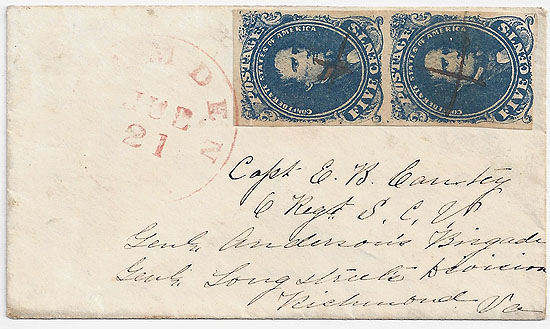 POSTAGE
CONFEDERATE STATES OF AMERICA
FIVE CENTS
POSTAGE
CONFEDERATE STATES OF AMERICA
FIVE CENTS
MDEN
21
Capt E. B. Cantey
6 Regt S. C. V
Genl. Anderson's Brigade
Genl. Longstreets Division
Richmond Va